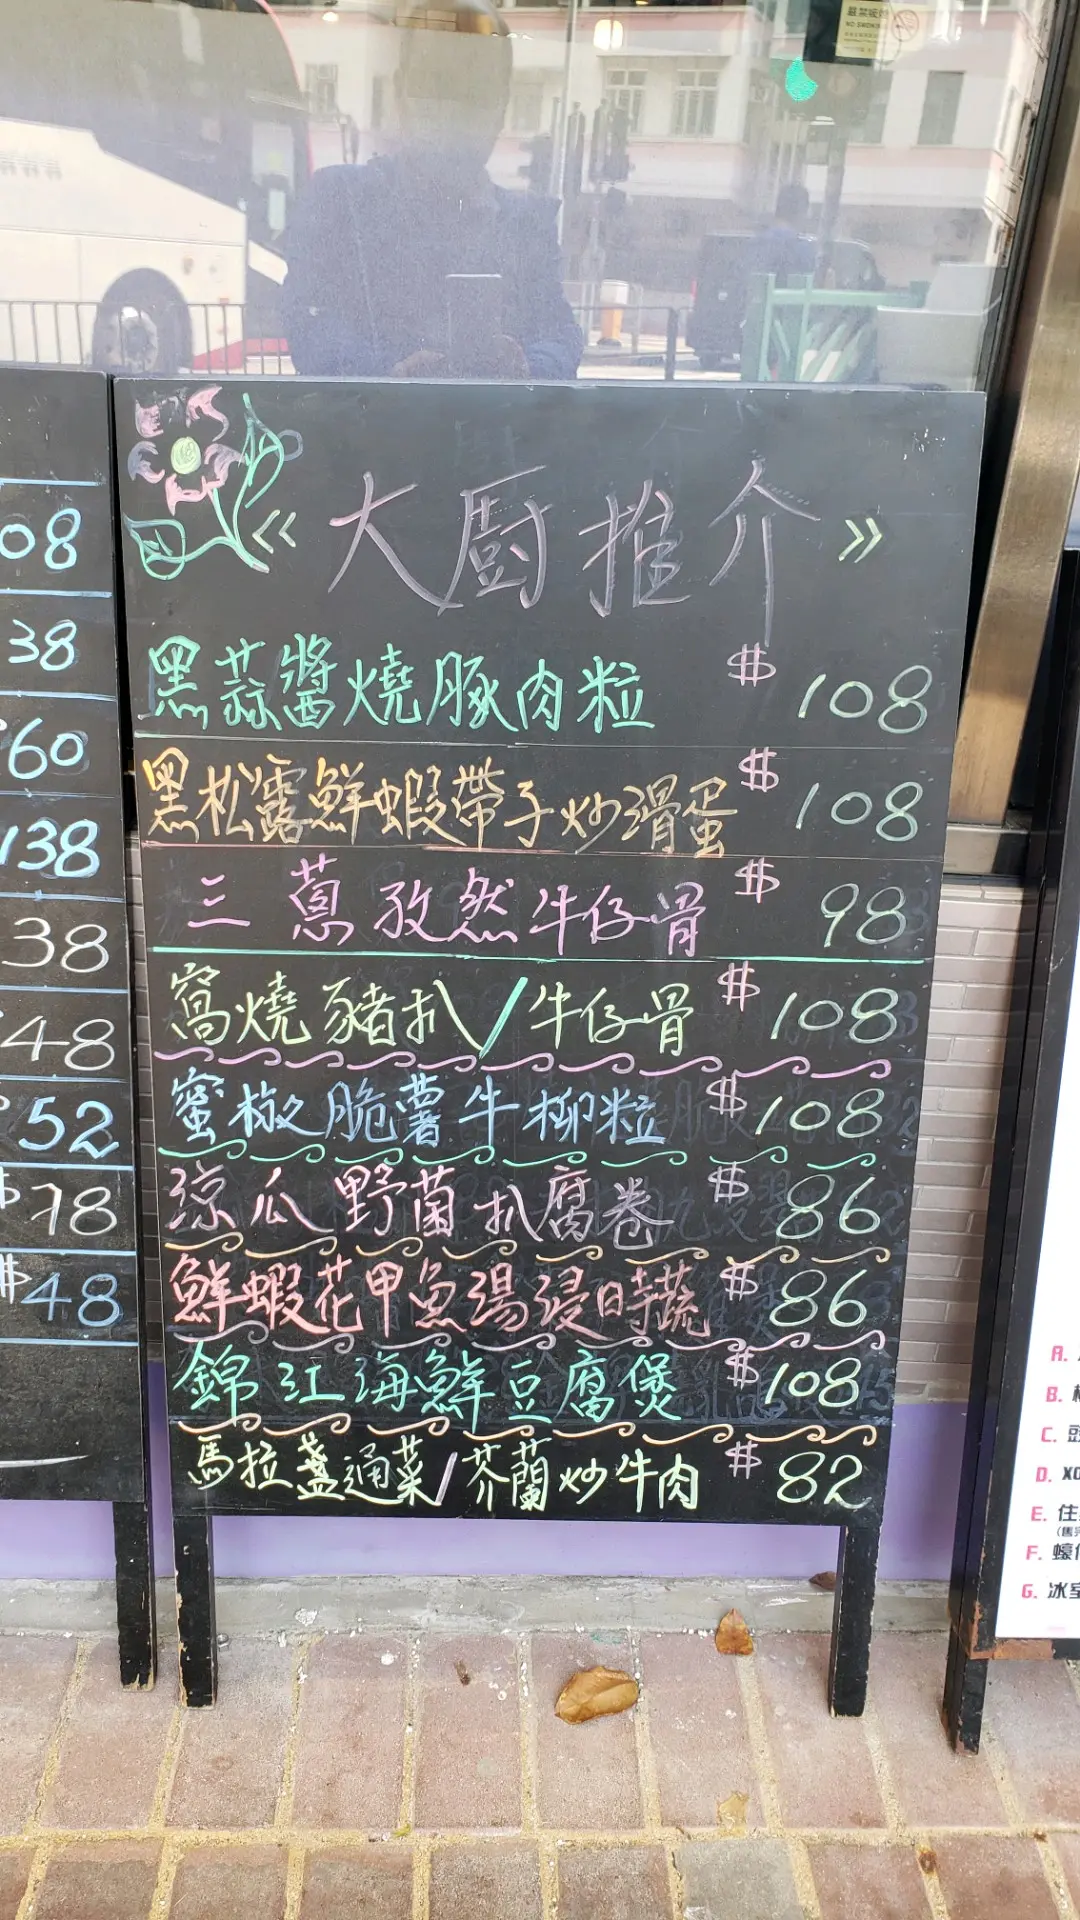 嚴禁吸煙
NO SMOKING
08
38
60
138
38
48
52
$78
$48
《大廚推介》
黑蒜醬燒豚肉粒 $108
黑松露鮮蝦帶子炒滑蛋 $108
三蔥孜然牛仔骨 $98
窩燒豬扒/牛仔骨 $108
蜜椒脆薯牛柳粒 $108
涼瓜野菌扒腐卷 $86
鮮蝦花甲魚湯浸時蔬 $86
錦江海鮮豆腐煲 $108
馬拉盞通菜/芥蘭炒牛肉 $82
A.
B.
C.
D. XO
E. 住
F. 蠔
G. 冰室